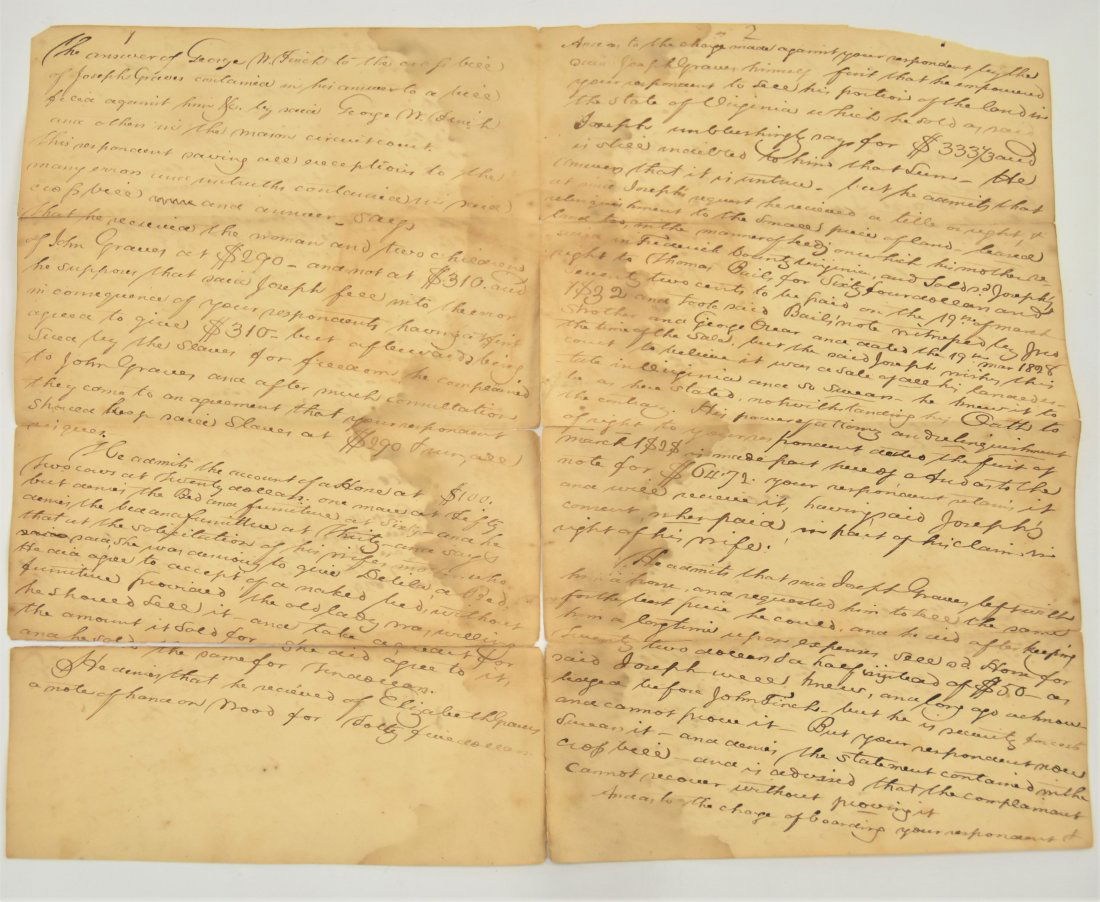 1
The answer of George W. Finch to the cross bill
of Joseph Graves contained in his answer to a bill
filed against him &c. by said George W. Finch
and others in the mason circuit court.
This respondent saving all exceptions to the
many errors and untruths contained in said
cross bill and answer says
That he received the woman and two children
of John Graves at $290 - and not at $310. and
he supposes that said Joseph fell into the error
in consequence of your respondents having at first
agreed to give $310 - but afterwards being
Sued by the Slaves for freedom he complained
to John Graves and after much consultation
they came to an agreement that your respondent
should keep said Slaves at $290
He admits the account of a Horse at $100.
two cows at twenty dollars. one mare at fifty
but denies the Bed and furniture at Sixty and he
denies the bed and furniture at thirty and says
that at the solicitation of his wifes mother who
said she was desirous to give Delila a Bed
He did agree to accept of a naked bed, without
furniture provided the old lady was willing
he should sell it - and take a credit for
the amount it sold for she did agree to it,
and he sold the same for ten dollars.
He denies that he received of Elizabeth Graves
a note of hand on Wood for forty five dollars.
2
And as to the charge made against your respondent by the
said Joseph Graves himself first that he empowered
your respondent to sell his portion of the land in
the state of Virginia which he sold as said
Joseph unblushingly says for $333⅓ and
is still indebted to him that Sum - He
answers that it is untrue - but he admits that
at said Josephs request he received a title or right, &
relinquishment to the small piece of land - leased
land too, in the manner of on which his mother re
sided in Frederick County Virginia, and sold sd Josephs
right to Thomas Bail, for Sixty four dollars and
seventy two cents to be paid on the 19th of march
1832 and took said Bails note witnessed by Jno
Strother and George Orear and dated the 19th mar 1828
the time of the sale, but the said Joseph wishes this
court to believe it was a sale of all his landed es-
tate in Virginia and so swears - he knew it to
be as here stated, notwithstanding his Oath to
the contrary. His power of attorny and relinquishment
of right to your respondent dated the first of
March 1828 is made part hereof And as to the
note for $64.72. your respondent retains it
and will receive it, having said Joseph's
consent when paid, in part of his claim in
right of his wife.
He admits that said Joseph Graves left with
him a horse, and requested him to sell the same
for the best price he could, and he did after keeping
him a long time upon expenses sell sd Horse for
twenty two dollars & a half instead of $50 - as
said Joseph well knew, and long ago acknow-
ledged before John Finch - but he is
and cannot prove it - But your respondent now
swears it - and denies the statement contained in the
cross bill - and is advised that the complainant
cannot recover without proving it
And as to the charge of boarding your respondent &